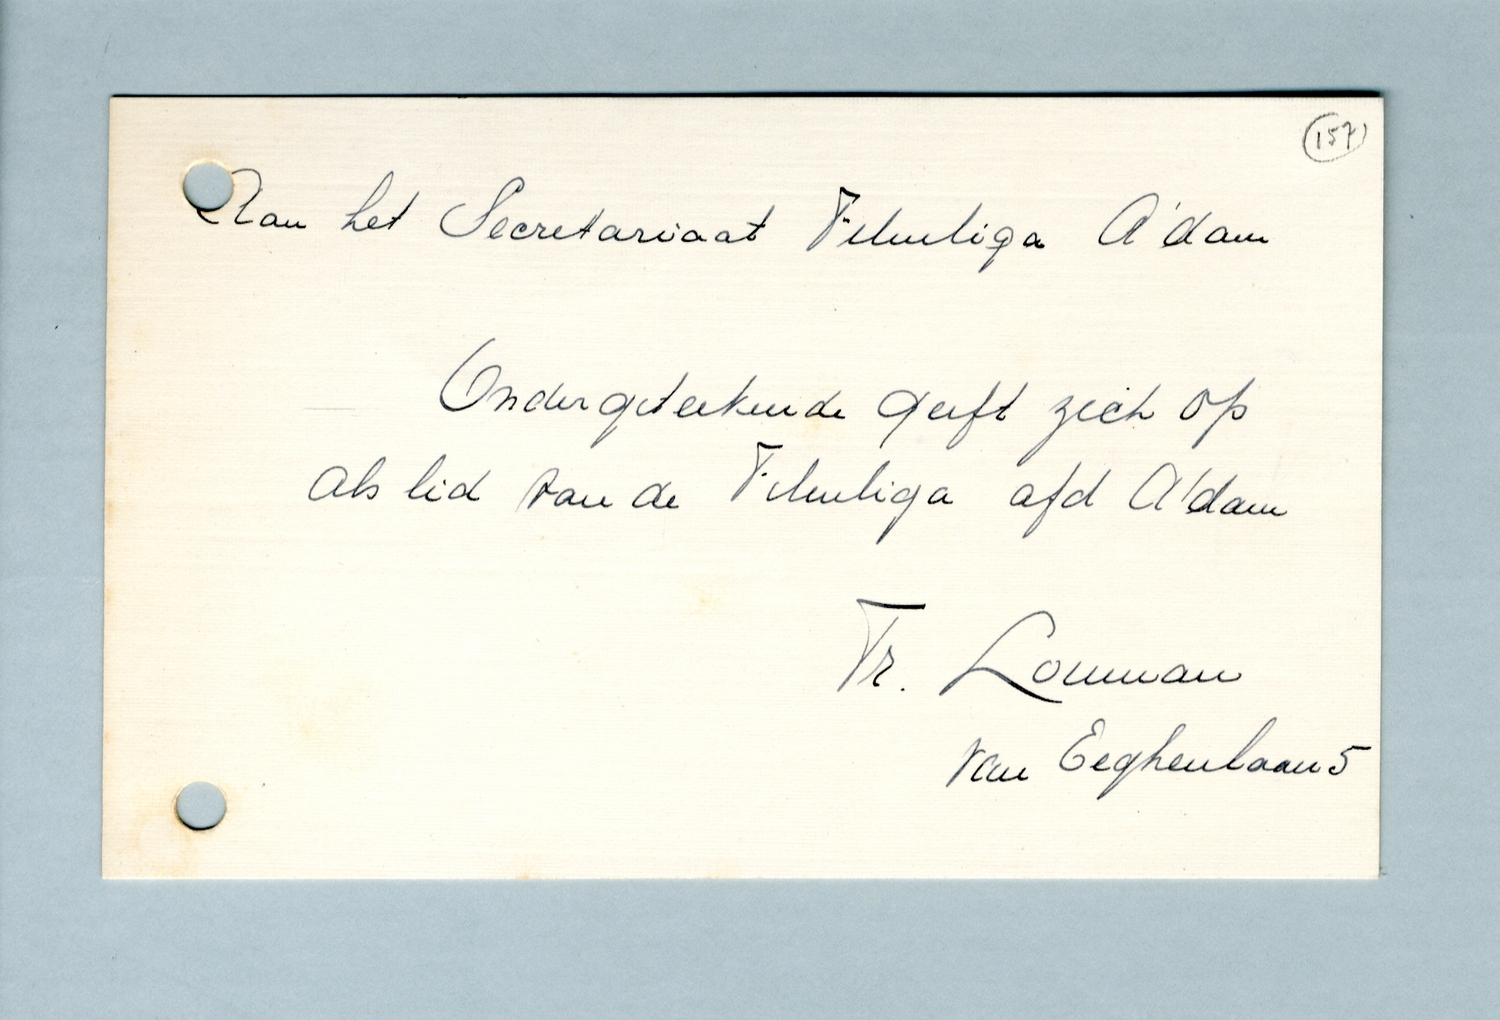 157
Aan het Secretariaat Filmliga A'dam
Ondergeteekende geeft zich op
als lid van de Filmliga afd A'dam
Fr. Louman
van Eeghenlaan 5